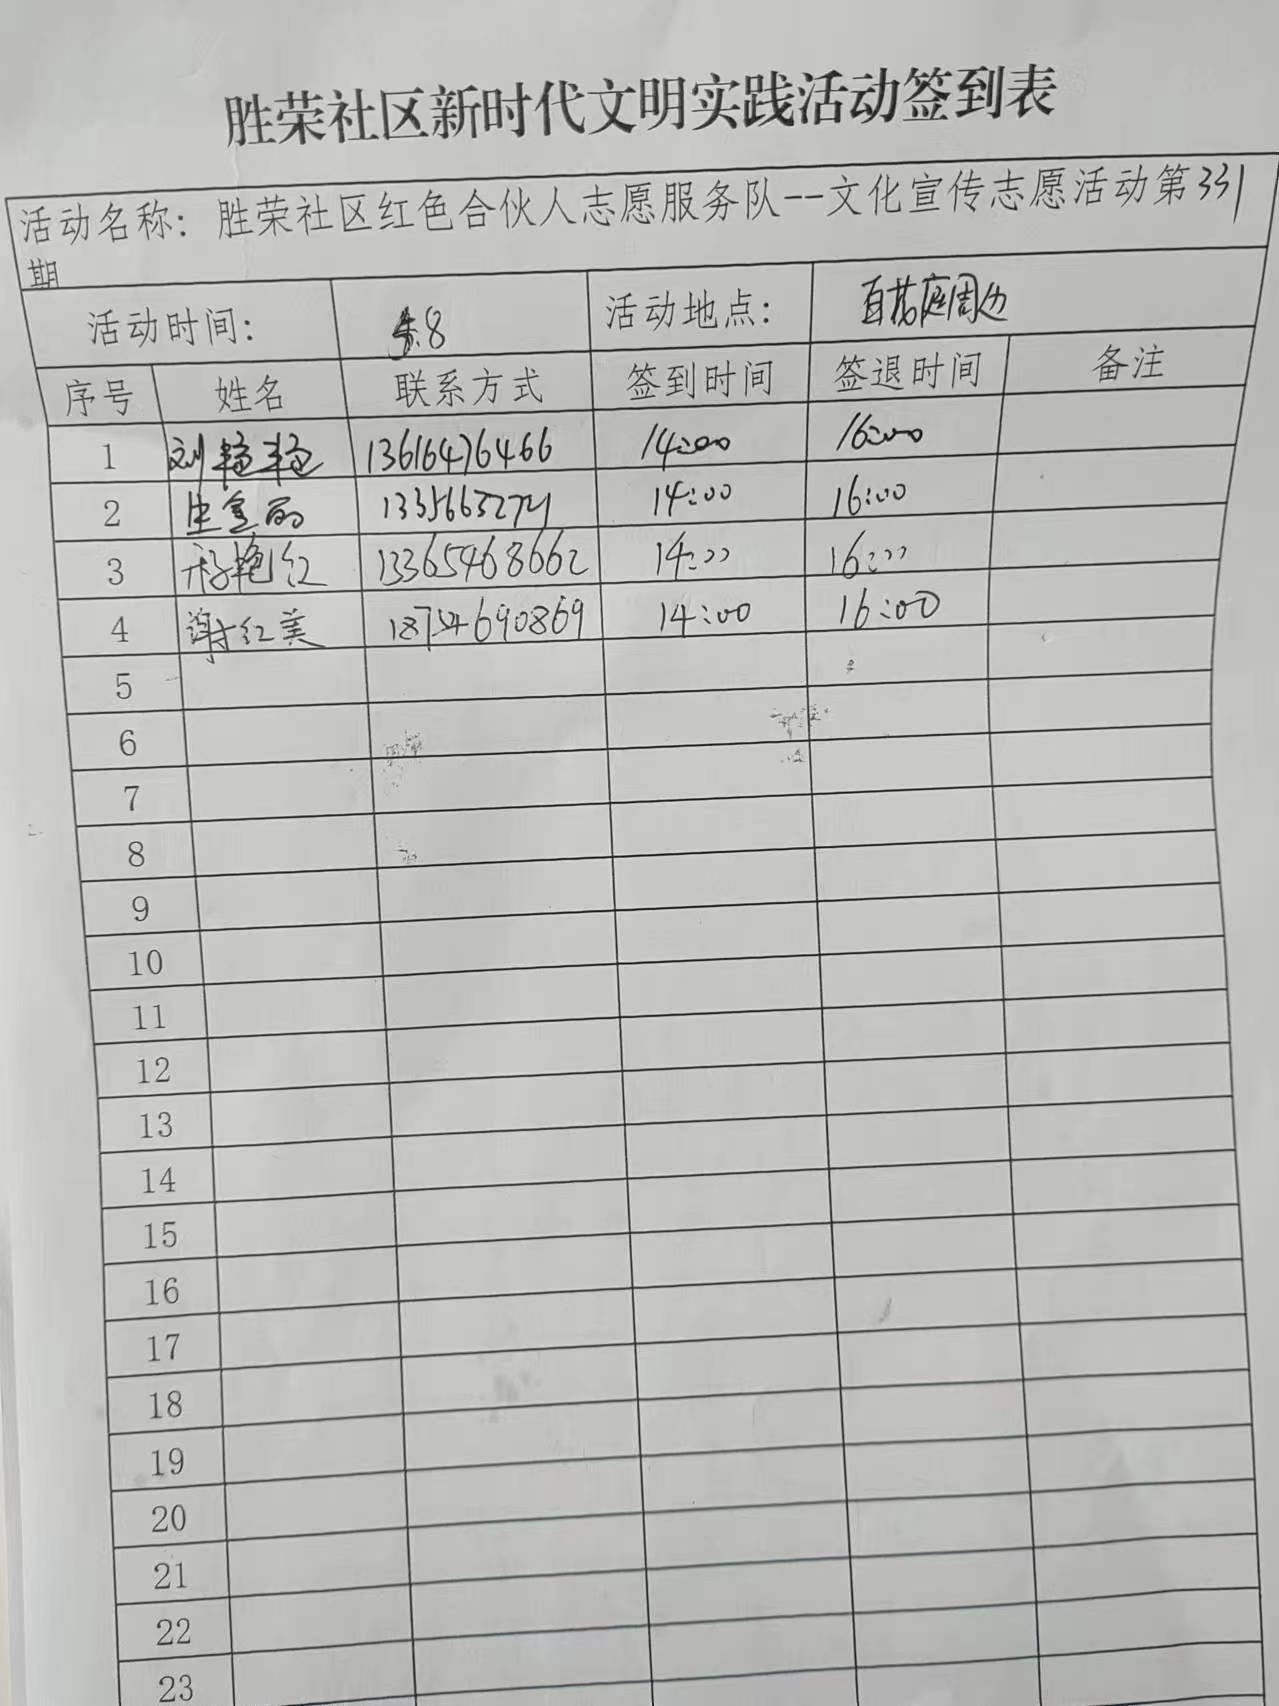 胜荣社区新时代文明实践活动签到表
活动名称：胜荣社区红色合伙人志愿服务队--文化宣传志愿活动第331
期
活动时间： 8 活动地点： 周边
序号 姓名 联系方式 签到时间 签退时间 备注
1 刘艳艳 13616476466 14:00 16:00
2 14:00 16:00
3 艳红 13365468662 14:00 16:00
4 谢红美 690869 14:00 16:00
5
6
7
8
9
10
11
12
13
14
15
16
17
18
19
20
21
22
23